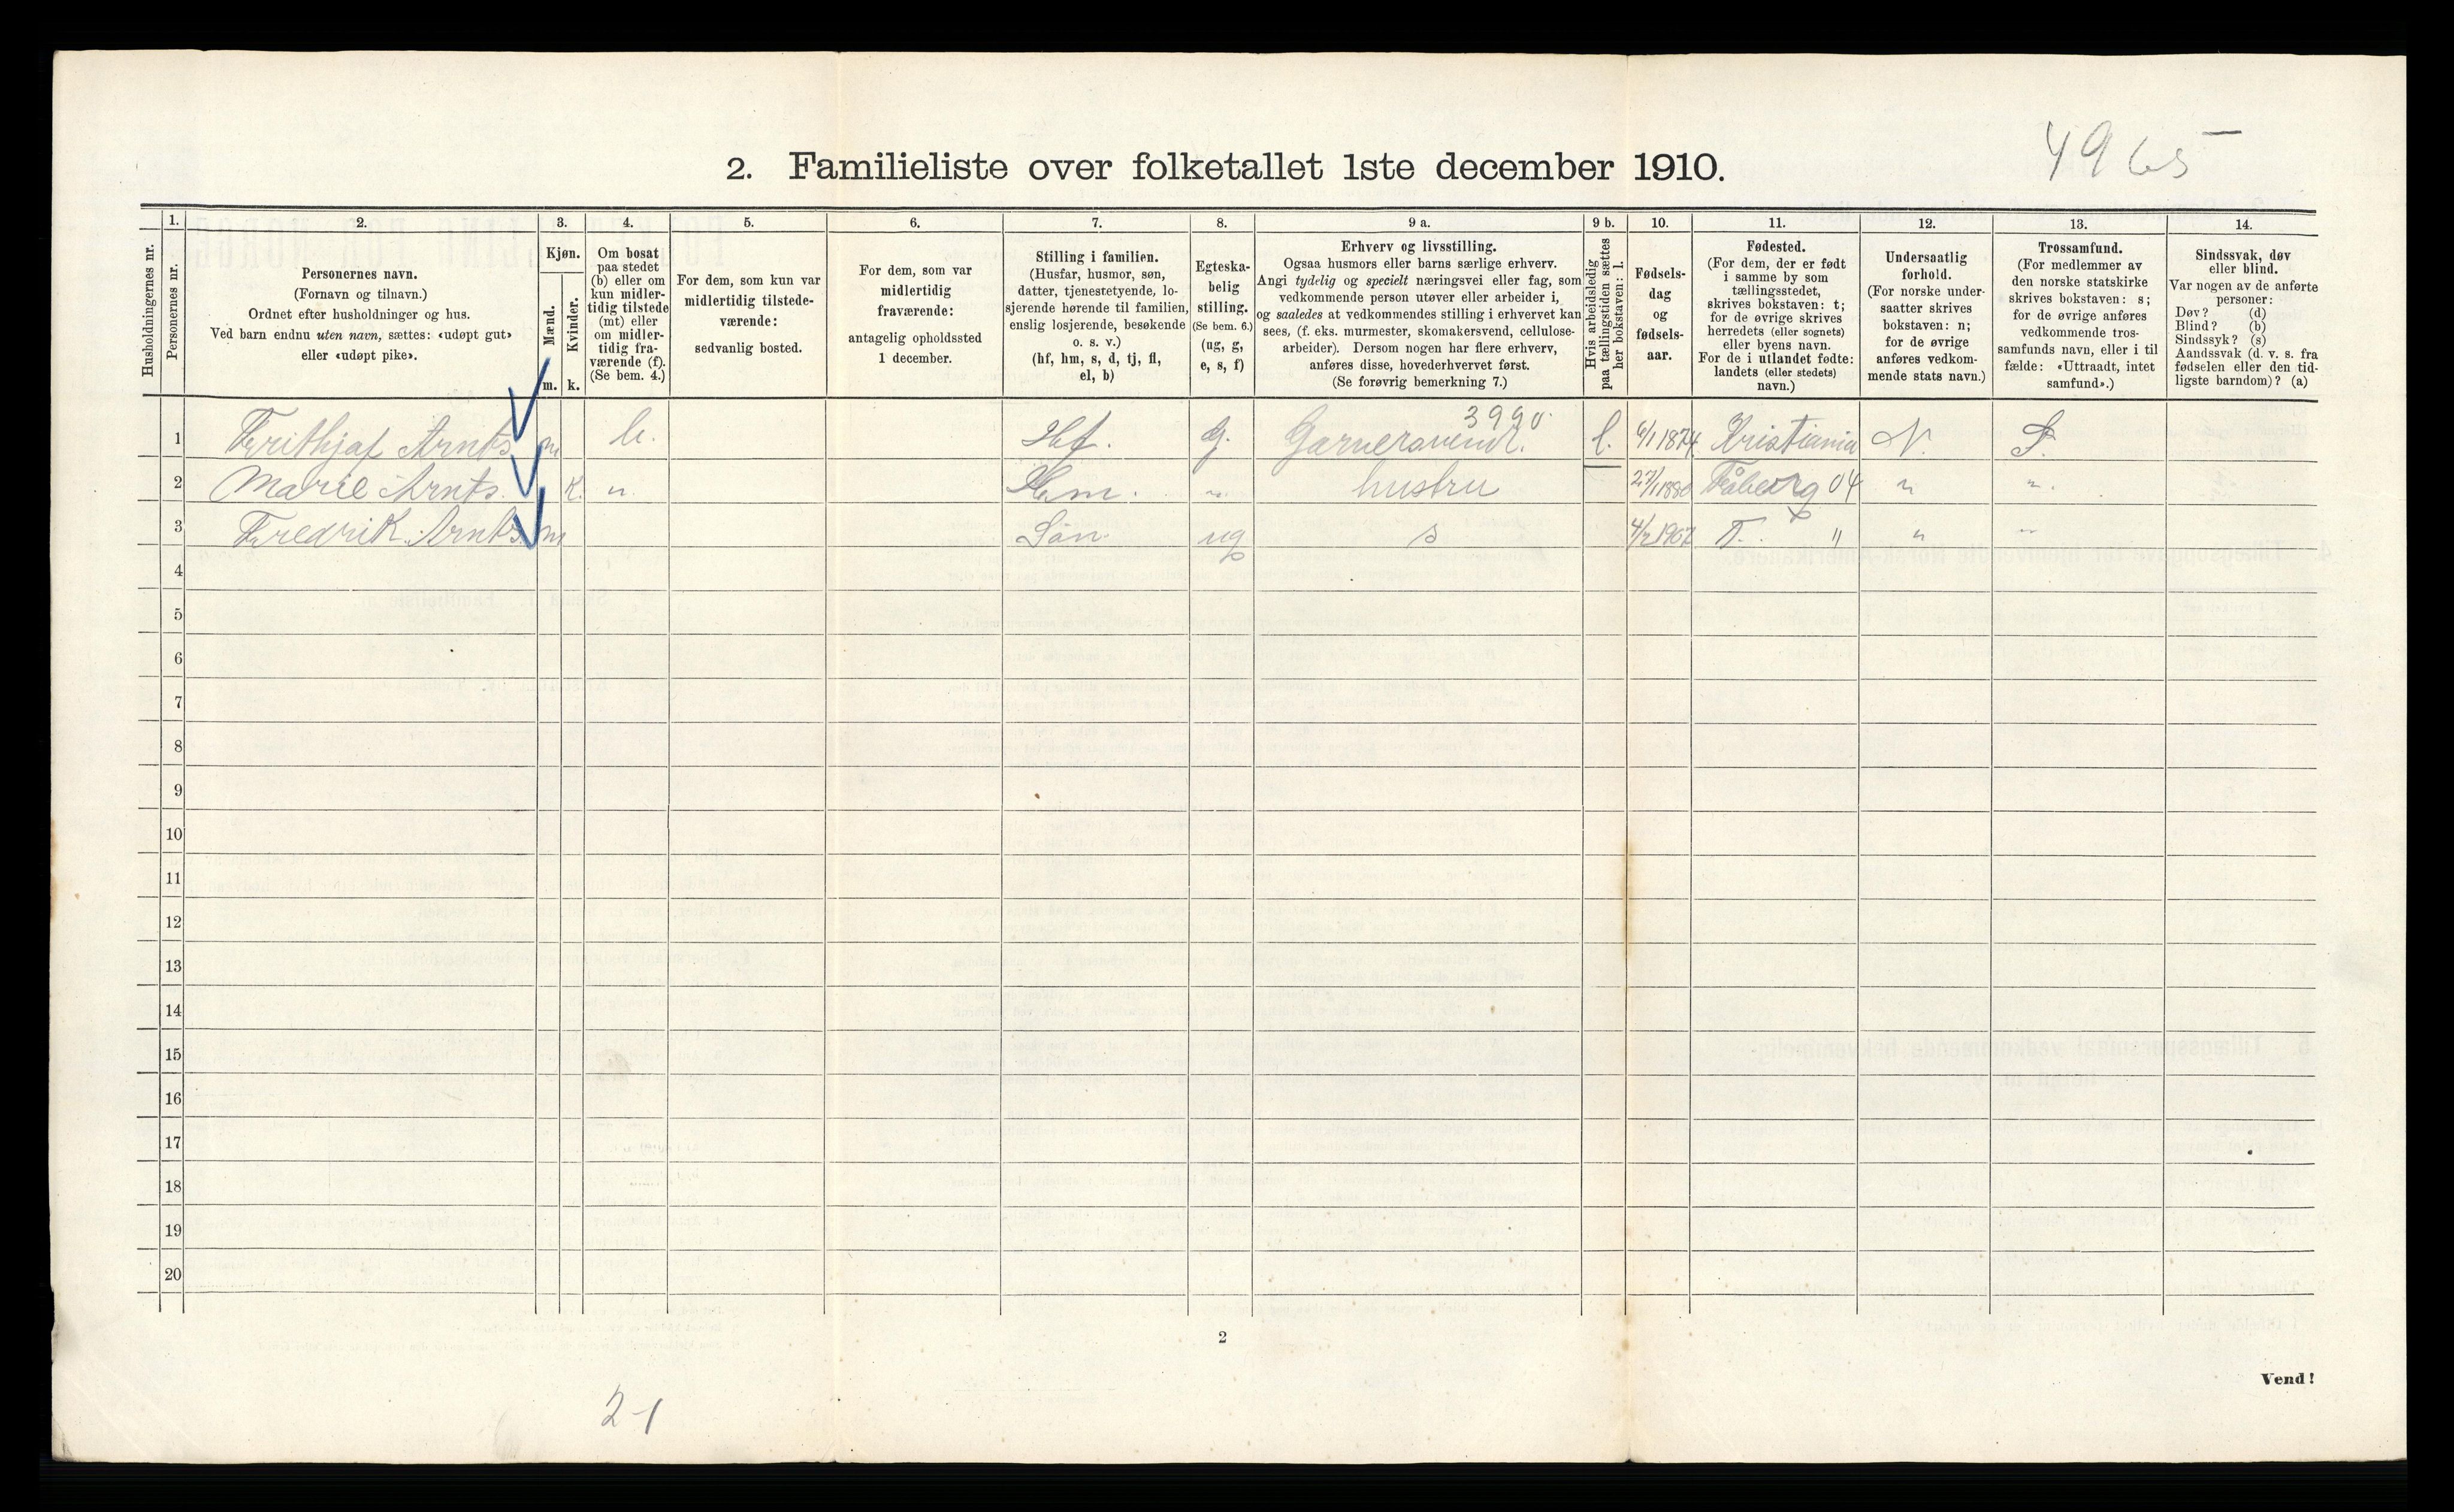 4965
2. Familieliste over folketallet 1ste december 1910.
Husholdningernes nr.
1.
Personernes nr.
2.
Personernes navn.
(Fornavn og tilnavn.)
Ordnet efter husholdninger og hus.
Ved barn endnu uten navn, sættes: «udøpt gut»
eller «udøpt pike».
3.
Kjøn.
Mænd.
m.
Kvinder.
k.
4.
Om bosat
paa stedet
(b) eller om
kun midler-
tidig tilstede
(mt) eller
om midler-
tidig fra-
værende (f).
(Se bem. 4.)
5.
For dem, som kun var
midlertidig tilstede-
værende:
sedvanlig bosted.
6.
For dem, som var
midlertidig
fraværende:
antagelig opholdssted
1 december.
7.
Stilling i familien.
(Husfar, husmor, søn,
datter, tjenestetyende, lo-
sjerende hørende til familien,
enslig losjerende, besøkende
o. s. v.)
(hf, hm, s, d, tj, fl,
el, b)
8.
Egteska-
belig
stilling.
(Se bem. 6.)
(ug, g,
e, s, f)
9 a.
Erhverv og livsstilling.
Ogsaa husmors eller barns særlige erhverv.
Angi tydelig og specielt næringsvei eller fag, som
vedkommende person utøver eller arbeider i,
og saaledes at vedkommendes stilling i erhvervet kan
sees, (f. eks. murmester, skomakersvend, cellulose-
arbeider). Dersom nogen har flere erhverv,
anføres disse, hovederhvervet først.
(Se forøvrig bemerkning 7.)
9 b.
Hvis arbeidsledig
paa tællingstiden sættes
her bokstaven: l.
10.
Fødsels-
dag
og
fødsels-
aar.
11.
Fødested.
(For dem, der er født
i samme by som
tællingsstedet,
skrives bokstaven: t;
for de øvrige skrives
herredets (eller sognets)
eller byens navn.
For de i utlandet fødte:
landets (eller stedets)
navn.)
12.
Undersaatlig
forhold.
(For norske under-
saatter skrives
bokstaven: n;
for de øvrige
anføres vedkom-
mende stats navn.)
13.
Trossamfund.
(For medlemmer av
den norske statskirke
skrives bokstaven: s;
for de øvrige anføres
vedkommende tros-
samfunds navn, eller i til
fælde: «Uttraadt, intet
samfund».)
14.
Sindssvak, døv
eller blind.
Var nogen av de anførte
personer:
Døv? (d)
Blind? (b)
Sindssyk? (s)
Aandssvak (d. v. s. fra
fødselen eller den tid-
ligste barndom)? (a)
3990.
1 Frithjaf Arnts m b. Hf. g. Garversvend. l. 6/1 1874 Kristiania N. S.
2 Marie Arnts. K. " Hm. " hustru 27/1 1880 Fåberg 04 " "
3 Fredrik Arnts m Søn ug s 4/2 1907 T. " " "
4
5
6
7
8
9
10
11
12
13
14
15
16
17
18
19
20
2
Vend!
2-1